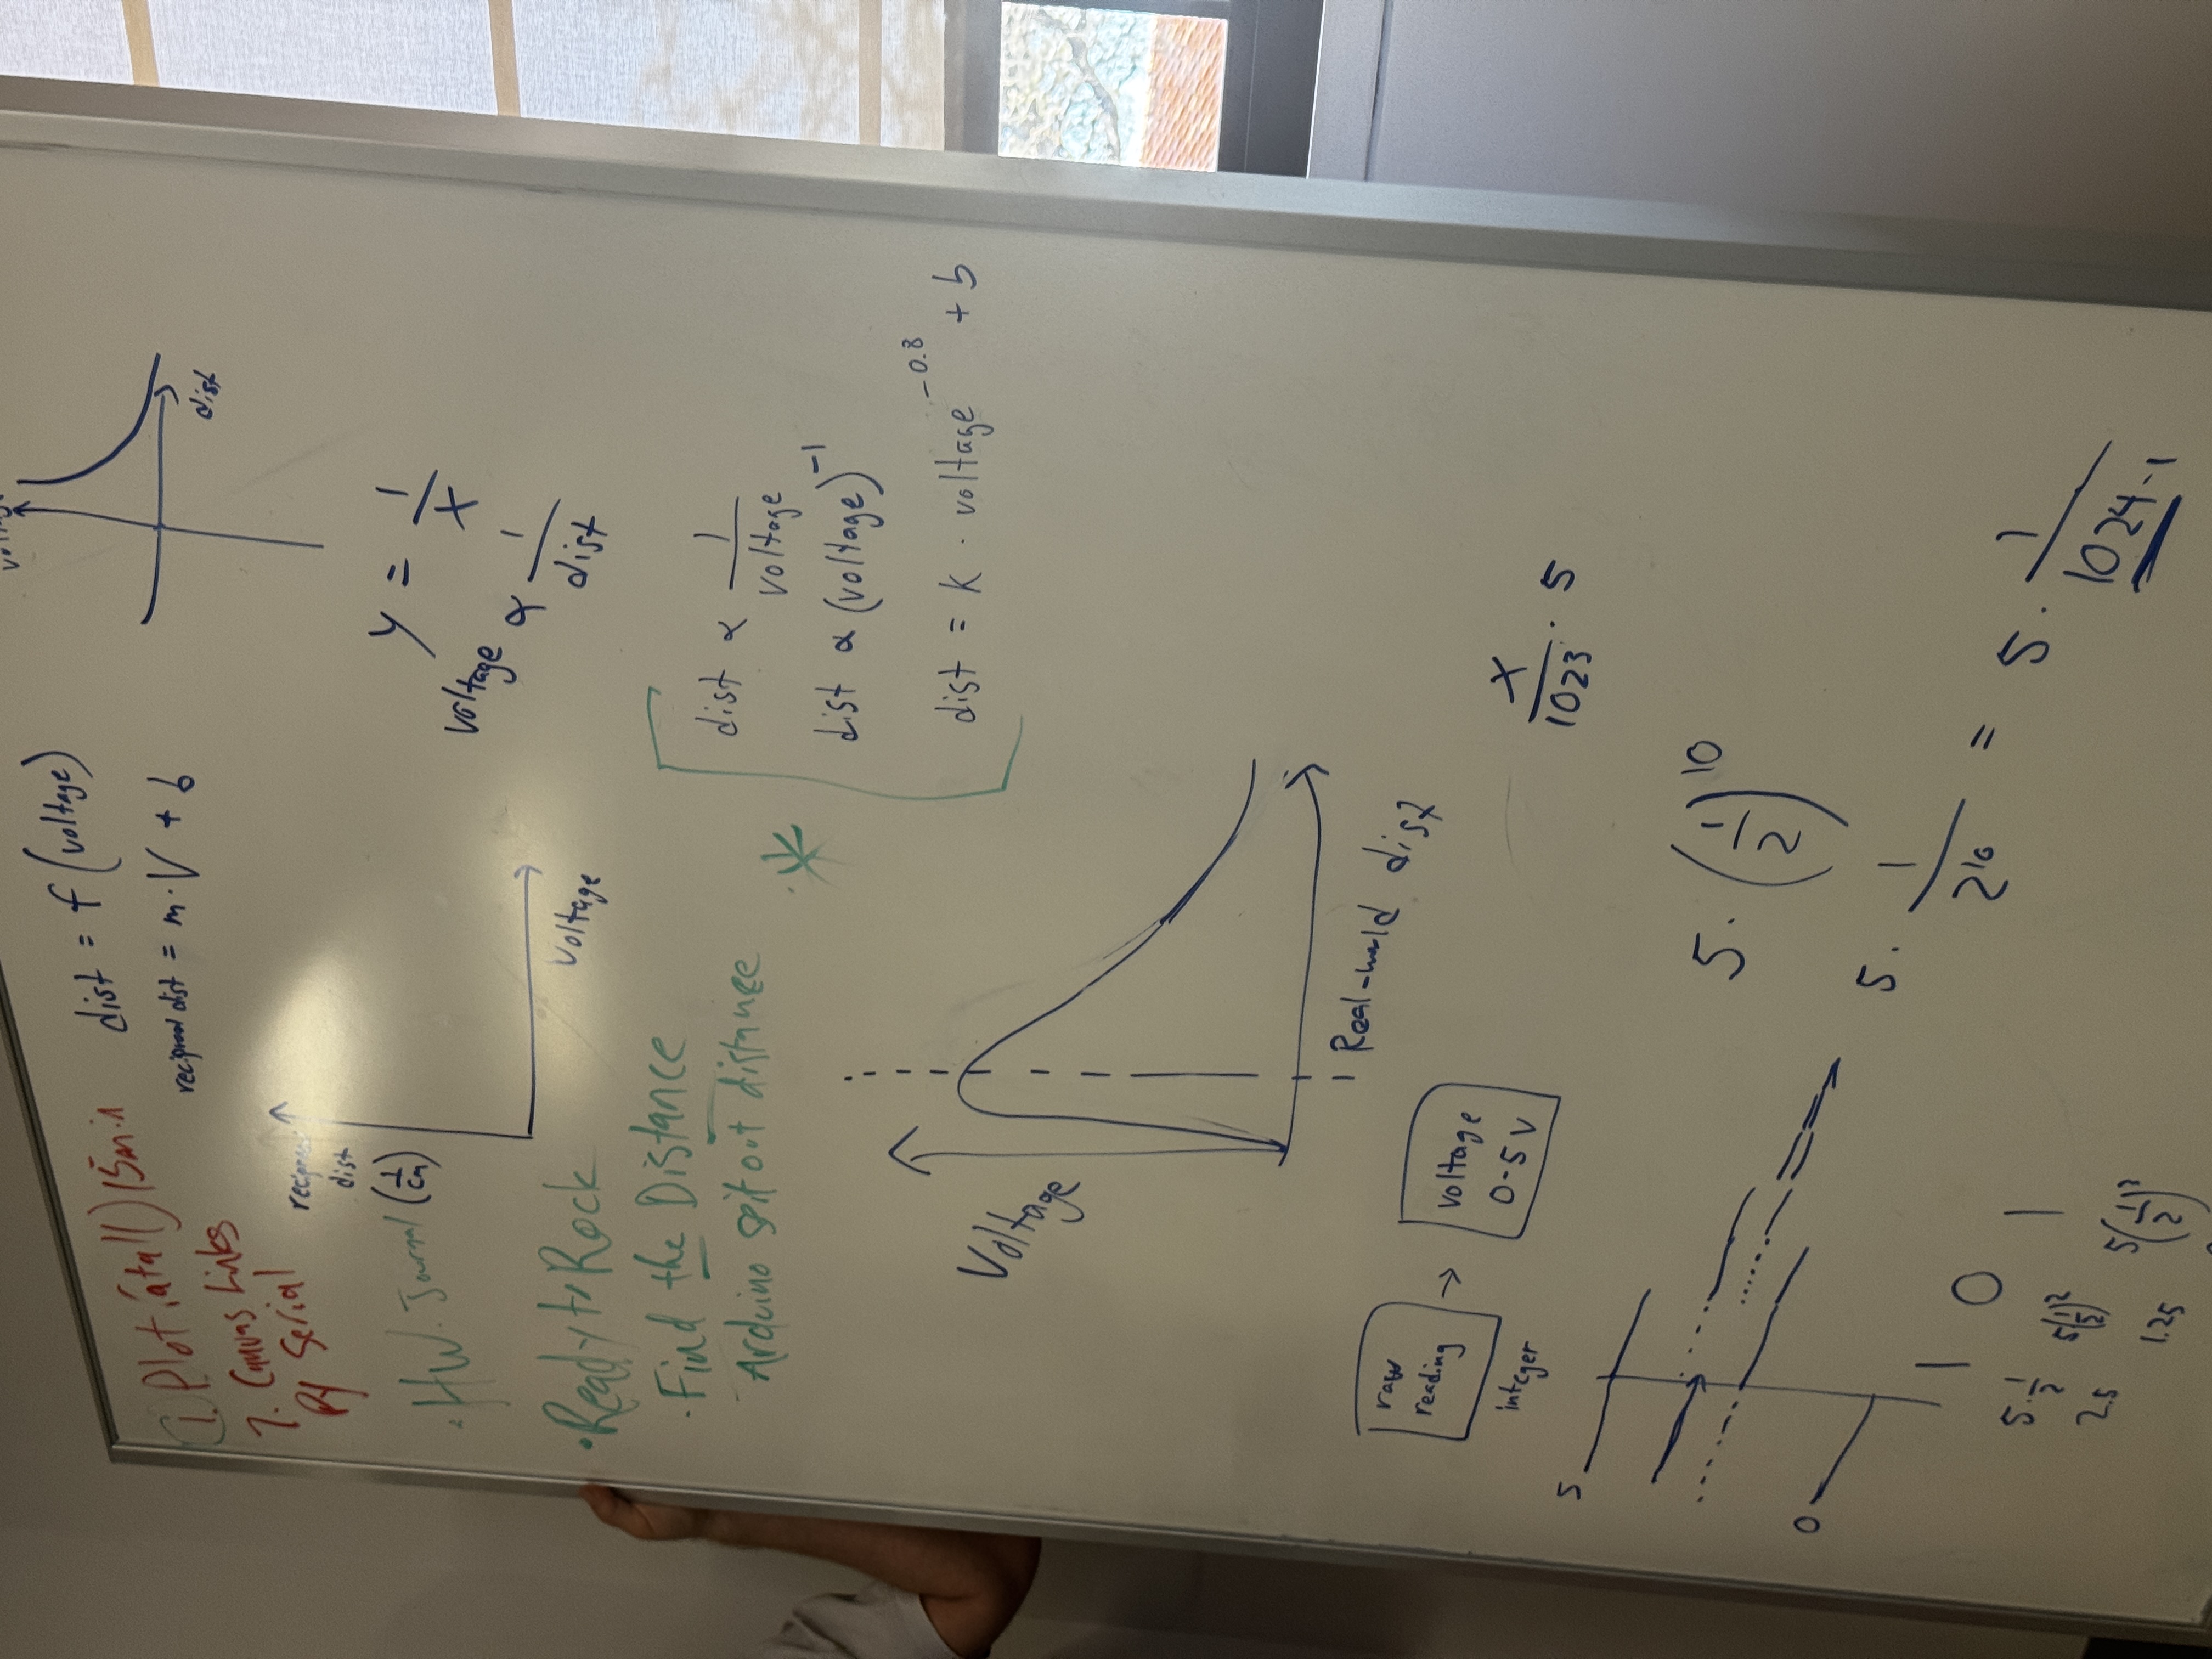 1. Plot (atall) 15min
7. Canvas Links
Py Serial
· HW. Journal
· Ready to Rock
· Find the Distance
Arduino spit out distance
dist = f (voltage)
reciprocal dist = m · V + b
dist
(1/cm)
voltage
dist
y = 1/x
voltage ∝ 1/dist
dist ∝ 1/voltage
dist ∝ (voltage)^-1
dist = K · voltage^-0.8 + b
Voltage
Real-world dist
raw reading → voltage 0-5V
integer
x/1023 · 5
5
0
1 0 1
5·1/2 5(1/2)² 5(1/2)³
2.5 1.25
5 · (1/2)^10
5 · 1/2^10 = 5 · 1/1024-1